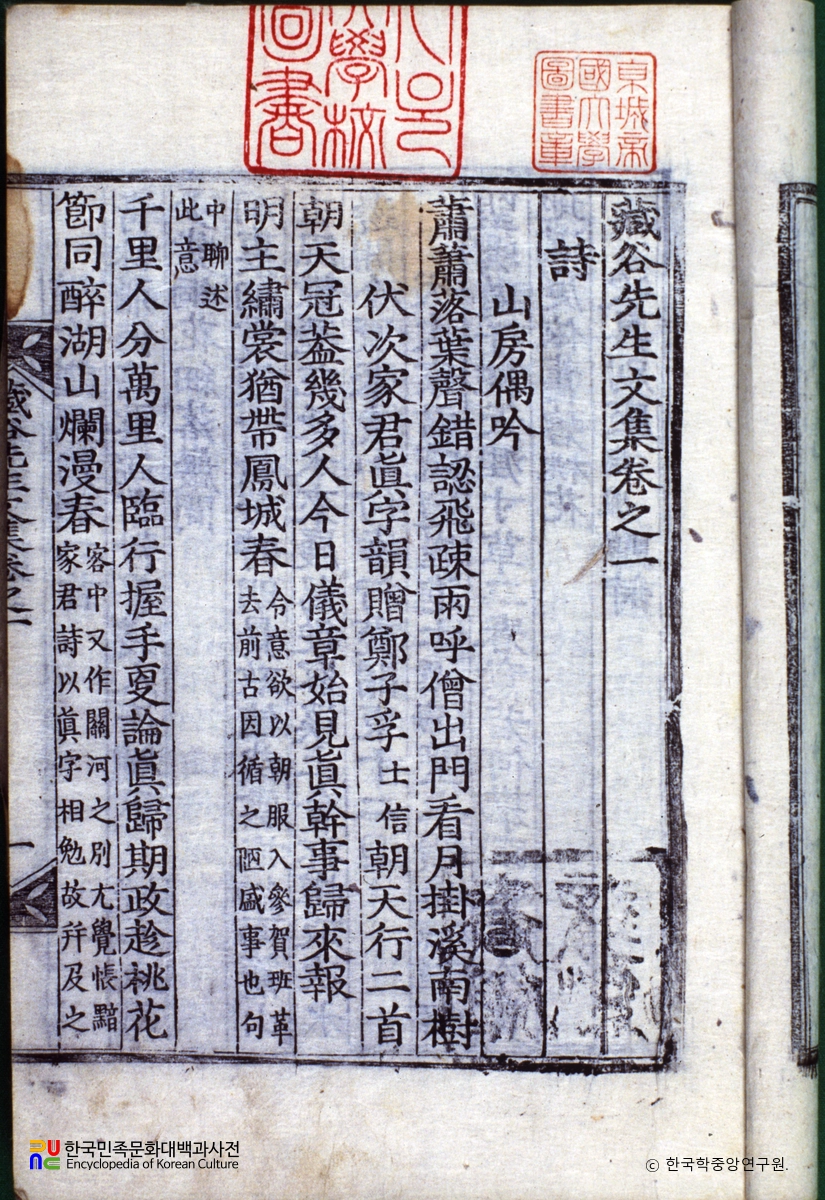 藏谷先生文集卷之一
詩
山房偶吟
蕭蕭落葉聲錯認飛疎雨呼僧出門看月掛溪南樹
伏次家君眞字韻贈鄭子孚士信朝天行二首
朝天冠盖幾多人今日儀章始見眞幹事歸來報
明主繡裳猶帶鳳城春
令意欲以朝服入參賀班革
去前古因循之陋盛事也句
中聊述
此意
千里人分萬里人臨行握手更論眞歸期政趁桃花
節同醉湖山爛漫春
客中又作關河之別尤覺悵黯
家君詩以眞字相勉故幷及之
藏谷先生文集卷之一
一
東城帝國大學圖書章
學校圖書
한국민족문화대백과사전
Encyclopedia of Korean Culture
© 한국학중앙연구원.